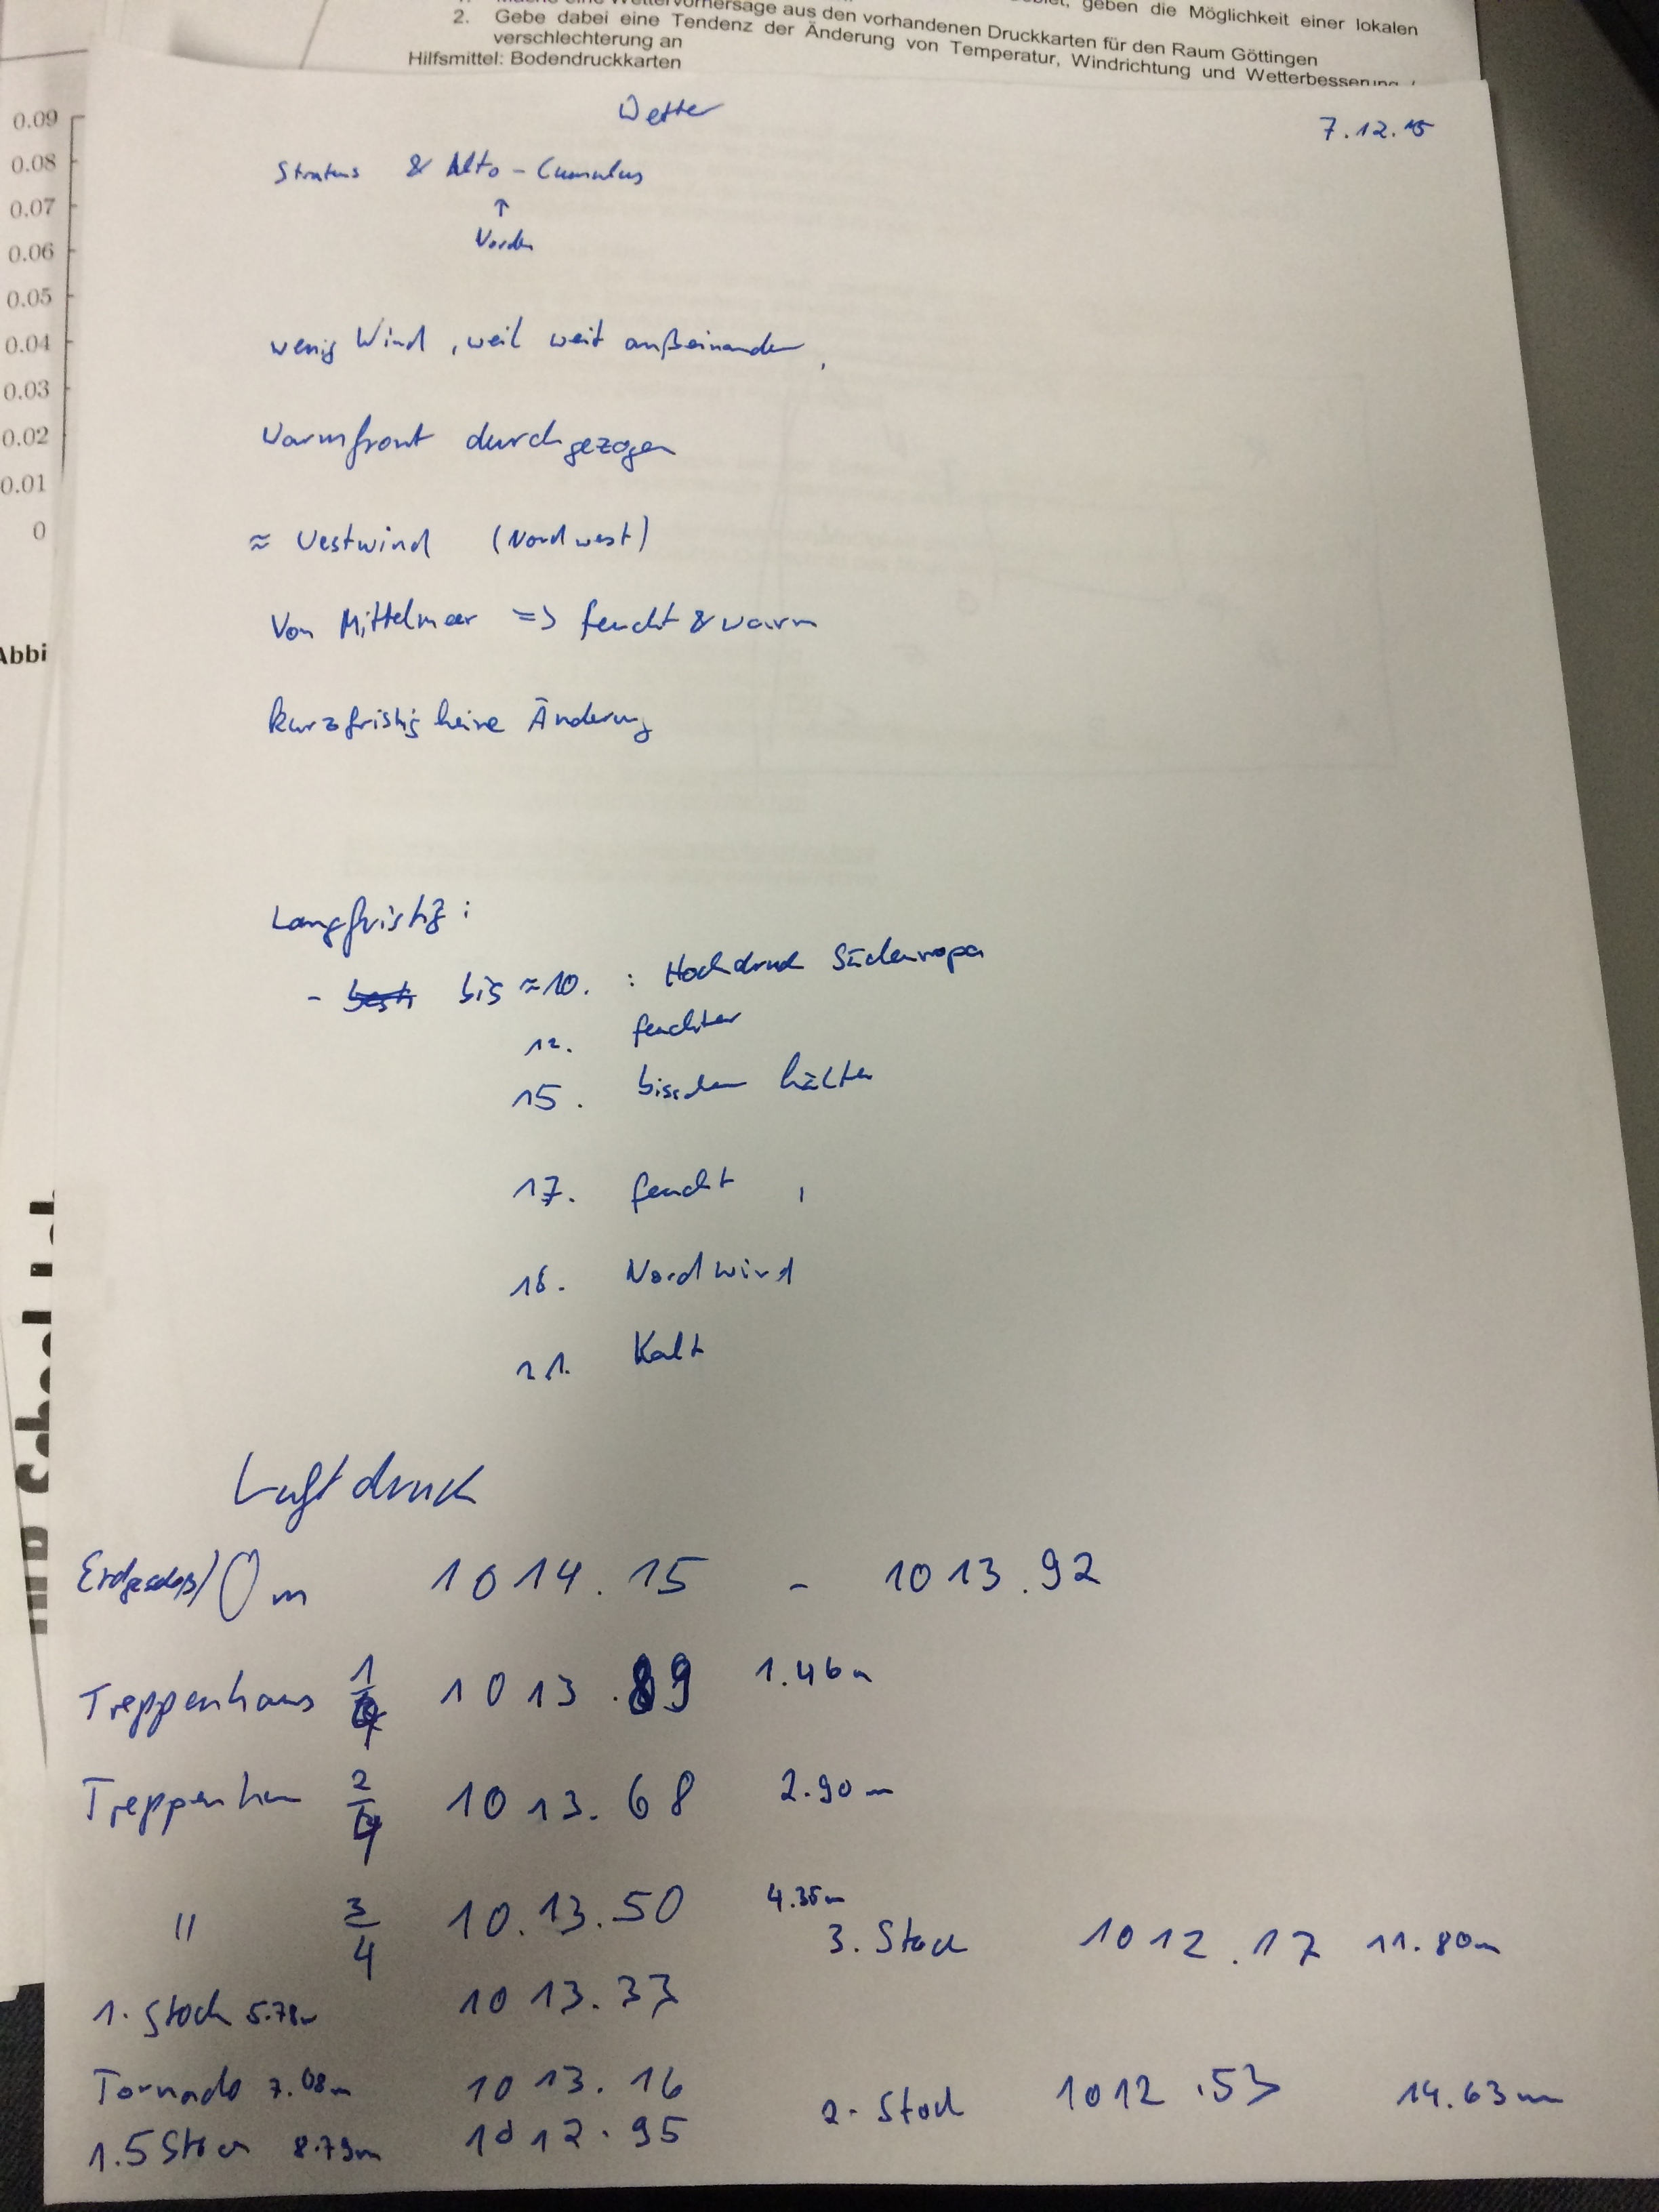 geben die Möglichkeit einer lokalen
Wettervorhersage aus den vorhandenen Druckkarten für den Raum Göttingen
2. Gebe dabei eine Tendenz der Änderung von Temperatur, Windrichtung und Wetterbesserung /
verschlechterung an
Hilfsmittel: Bodendruckkarten
0.09
0.08
0.07
0.06
0.05
0.04
0.03
0.02
0.01
0
Abbi
Wetter
7.12.15
Stratus & Alto-Cumulus
↑
Norden
wenig Wind, weil weit außeinander,
Warmfront durchgezogen
≈ Westwind (Nordwest)
Von Mittelmeer => feucht & warm
kurzfristig keine Änderung
Langfristig:
- bis ≈10. : Hochdruck Südeuropa
12. feuchter
15. bisschen kälter
17. feucht,
18. Nordwind
21. Kalt
Luftdruck
Erdgeschoß/0m 1014.15 - 1013.92
Treppenhaus 1/4 1013.89 1.46m
Treppenhau 2/4 1013.68 2.90m
" 3/4 10.13.50 4.35m
3. Stock 1012.17 11.80m
1. Stock 5.78m 1013.33
Tornado 7.08m 1013.16
2. Stock 1012.53 14.63m
1.5 Stock 8.79m 1012.95